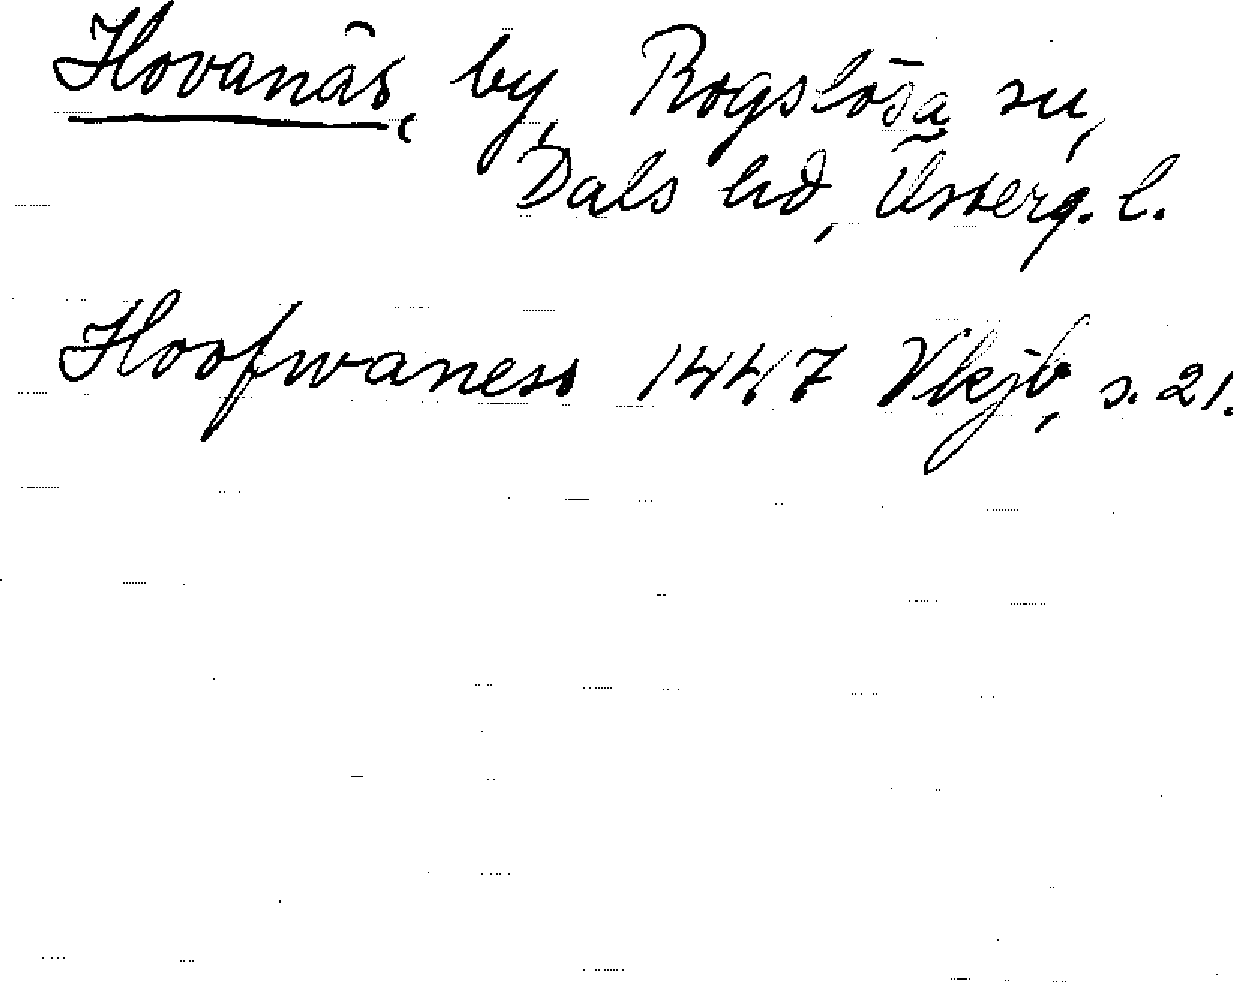 Hovanäs, by, Rogslösa sn,
Dals hd, Österg. l.
Hoofwaness 1447 Vkjb, s. 21.